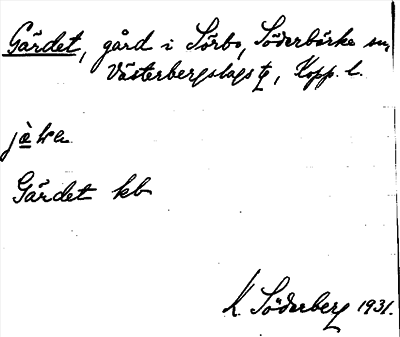 Gärdet, gård i Sörbo, Söderbärke sn,
Västerbergslags tg, Kopp. l.
Gärdet kb
K. Söderberg 1931.